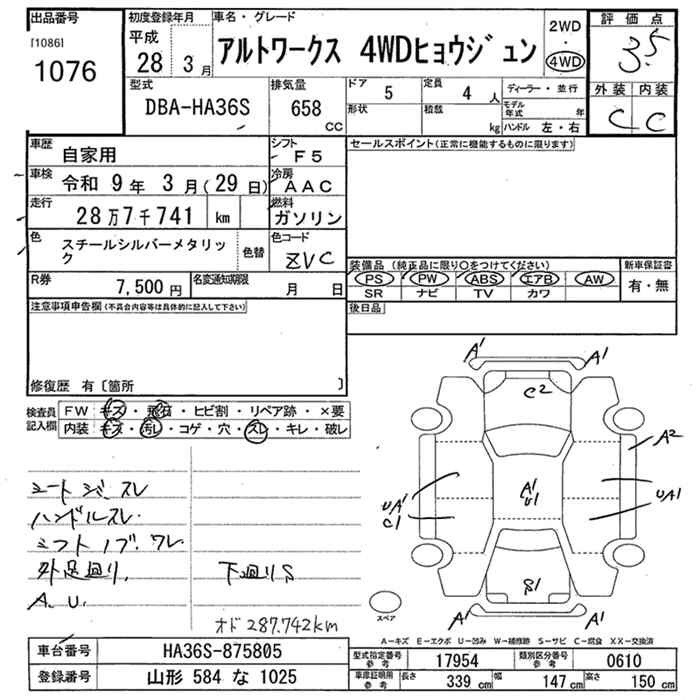 出品番号
[1086]
1076
初度登録年月
平成
28 3月
車名・グレード
アルトワークス 4WDヒョウジュン
2WD
・
4WD
評価点
3.5
外装 内装
C C
型式
DBA-HA36S
排気量
658
CC
ドア
5
形状
定員
4 人
積載
kg
ディーラー・並行
モデル
年式 年
ハンドル 左・右
車歴
自家用
シフト
F5
車検
令和 9年 3月(29日)
冷房
AAC
走行
28万7千741 km
燃料
ガソリン
色
スチールシルバーメタリッ
ク
色替
色コード
ZVC
R券
7,500円
名変通知期限
月 日
セールスポイント(正常に機能するものに限ります)
装備品(純正品に限り○をつけてください)
PS PW ABS エアB AW
SR ナビ TV カワ
新車保証書
有・無
後日品
注意事項申告欄(不具合内容等は具体的に記入して下さい)
修復歴 有〔箇所 〕
検査員
記入欄
FW キズ・飛石・ヒビ割・リペア跡・×要
内装 キズ・汚レ・コゲ・穴・スレ・キレ・破レ
シートジ、スレ
ハンドルスレ.
シフトノブ、ワレ
外足廻リ、
A.U.
下廻りS
オド287.742km
A1
A1
C2
A2
UA1
C1
A1
U1
UA1
S1
A1
A1
スペア
A-キズ E-エクボ U-凹み W-補修跡 S-サビ C-腐食 XX-交換済
車台番号
HA36S-875805
登録番号
山形 584 な 1025
型式指定番号
参考
17954
類別区分番号
参考
0610
車庫証明用
参考
長さ
339 cm
幅
147 cm
高さ
150 cm